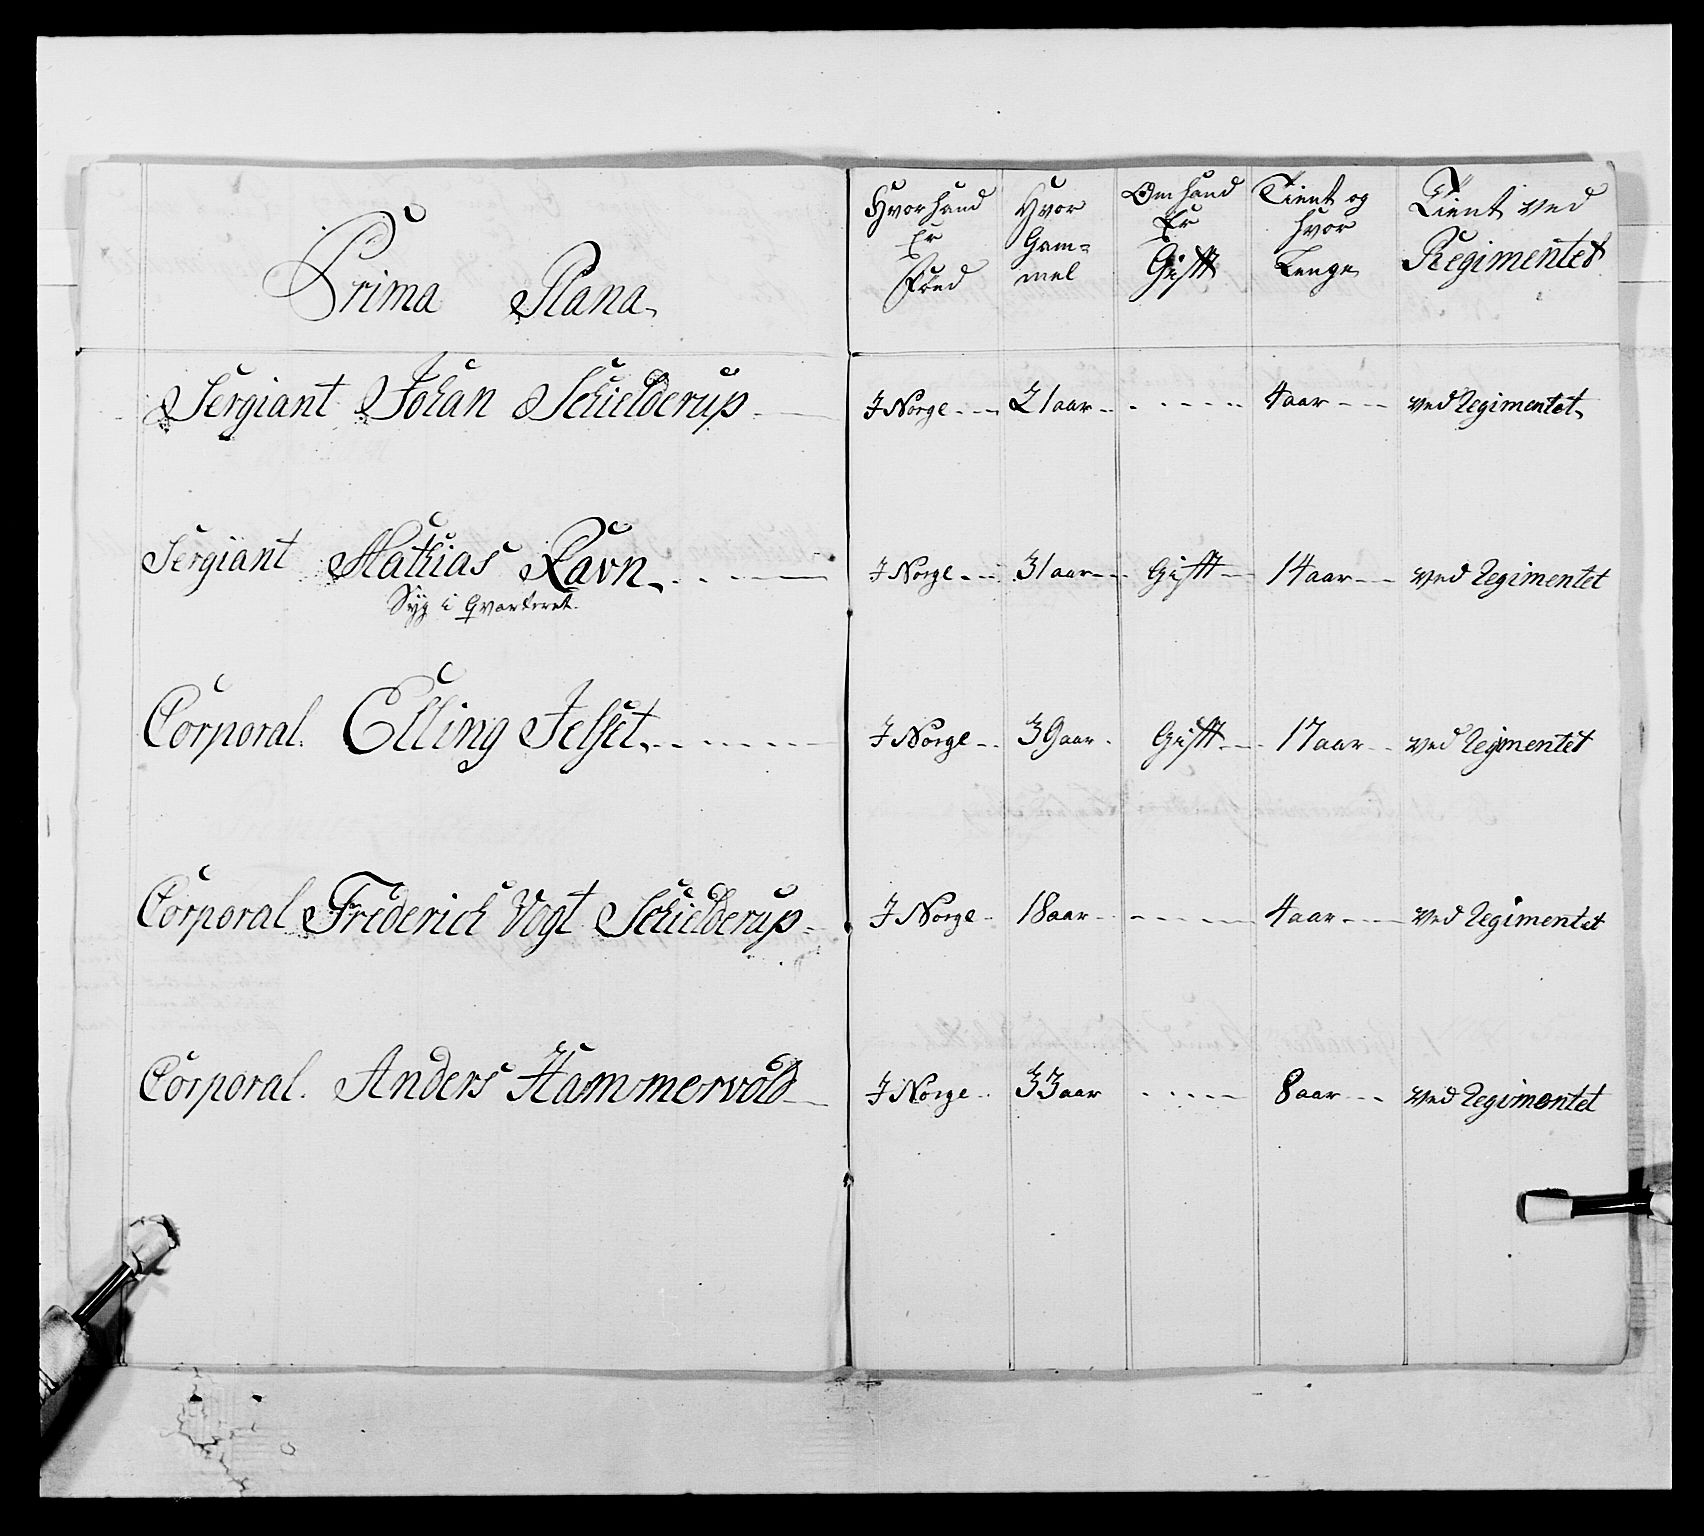 Prima Plana
Hvor hand Er Föed
Hvor Gam= mel
Om hand Er Gifft
Tient og hvor Lenge
Tient ved Regimentet
Sergiant Johan Schielderup - I Norge - 21 aar - - - - - - 4 aar - - ved Regimentet
Sergiant Mathias Ravn - - - - I Norge - 31 aar - - Gifft - 14 aar - - ved Regimentet
Syg i Qvarteret
Corporal Elling Jelset - - - - I Norge - 39 aar - Gifft - - 17 aar - ved Regimentet
Corporal Frederich Vogt Schielderup - I Norge - 18 aar - - - - - 4 aar - - ved Regimentet
Corporal Anders Hammervold - I Norge - 33 aar - - - - - 8 aar - - ved Regimentet